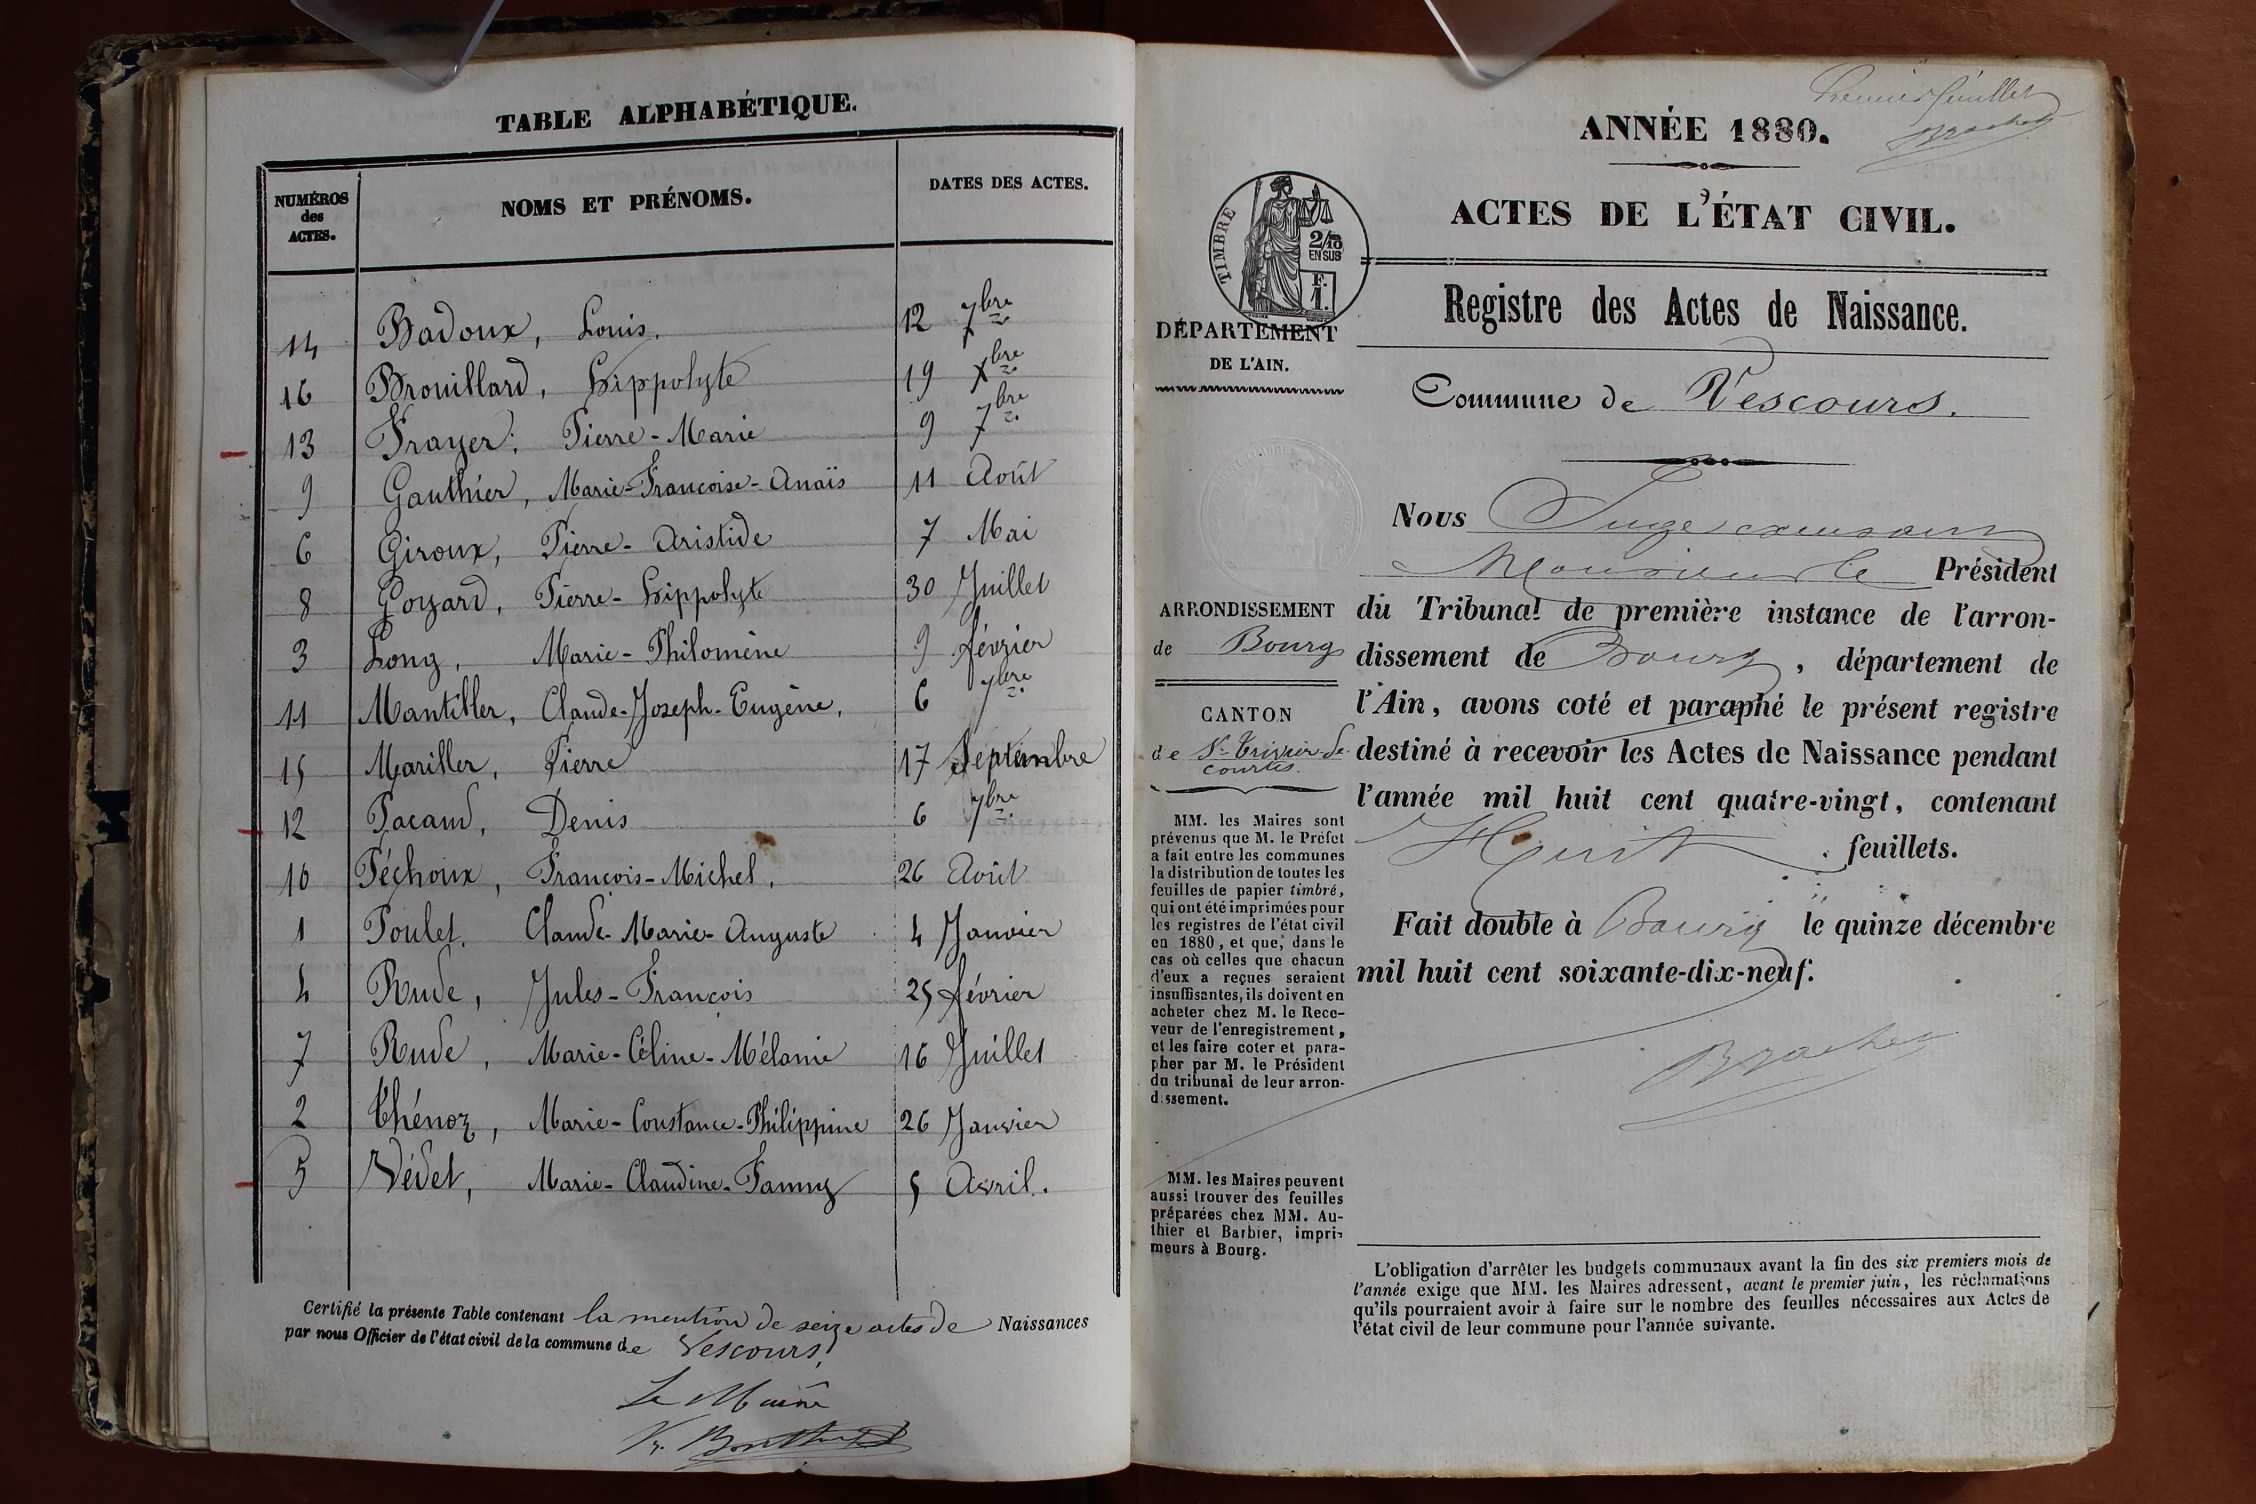 TABLE ALPHABÉTIQUE.
NUMÉROS des ACTES. NOMS ET PRÉNOMS. DATES DES ACTES.
14 Badoux, Louis. 12 7bre
16 Brouillard, Hippolyte 19 Xbre
13 Frayer, Pierre-Marie 9 7bre
9 Gauthier, Marie-Françoise-Anaïs 11 Août
6 Giroux, Pierre-Aristide 7 Mai
8 Goyard, Pierre-Hippolyte 30 Juillet
3 Long, Marie-Philomène 9 février
11 Mantiller, Claude-Joseph-Eugène, 6 7bre
15 Mariller, Pierre 17 Septembre
12 Pacaud, Denis 6 7bre
10 Péchoux, François-Michel, 26 Août
1 Poulet, Claude-Marie-Auguste 4 Janvier
4 Rude, Jules-François 25 février
7 Rude, Marie-Céline-Mélanie 16 Juillet
2 Thénoz, Marie-Constance-Philippine 26 Janvier
5 Védet, Marie-Claudine-Fanny 5 Avril.
Certifié la présente Table contenant la mention de seize actes de Naissances
par nous Officier de l'état civil de la commune de Vescours,
Le Maire
Premier feuillet
ANNÉE 1880.
ACTES DE L'ÉTAT CIVIL.
TIMBRE
2/10
EN SUS
F.
1.
DÉPARTEMENT
DE L'AIN.
ARRONDISSEMENT
de Bourg
CANTON
de St Trivier-de-
courtes.
MM. les Maires sont
prévenus que M. le Préfet
a fait entre les communes
la distribution de toutes les
feuilles de papier timbré,
qui ont été imprimées pour
les registres de l'état civil
en 1880, et que, dans le
cas où celles que chacun
d'eux a reçues seraient
insuffisantes, ils doivent en
acheter chez M. le Rece-
veur de l'enregistrement,
et les faire coter et para-
pher par M. le Président
du tribunal de leur arron-
dissement.
MM. les Maires peuvent
aussi trouver des feuilles
préparées chez MM. Au-
thier et Barbier, impri-
meurs à Bourg.
Registre des Actes de Naissance.
Commune de Vescours.
Nous Juge exerçant
Monsieur le Président
du Tribunal de première instance de l'arron-
dissement de Bourg, département de
l'Ain, avons coté et paraphé le présent registre
destiné à recevoir les Actes de Naissance pendant
l'année mil huit cent quatre-vingt, contenant
Huit feuillets.
Fait double à Bourg le quinze décembre
mil huit cent soixante-dix-neuf.
L'obligation d'arrêter les budgets communaux avant la fin des six premiers mois de
l'année exige que MM. les Maires adressent, avant le premier juin, les réclamations
qu'ils pourraient avoir à faire sur le nombre des feuilles nécessaires aux Actes de
l'état civil de leur commune pour l'année suivante.